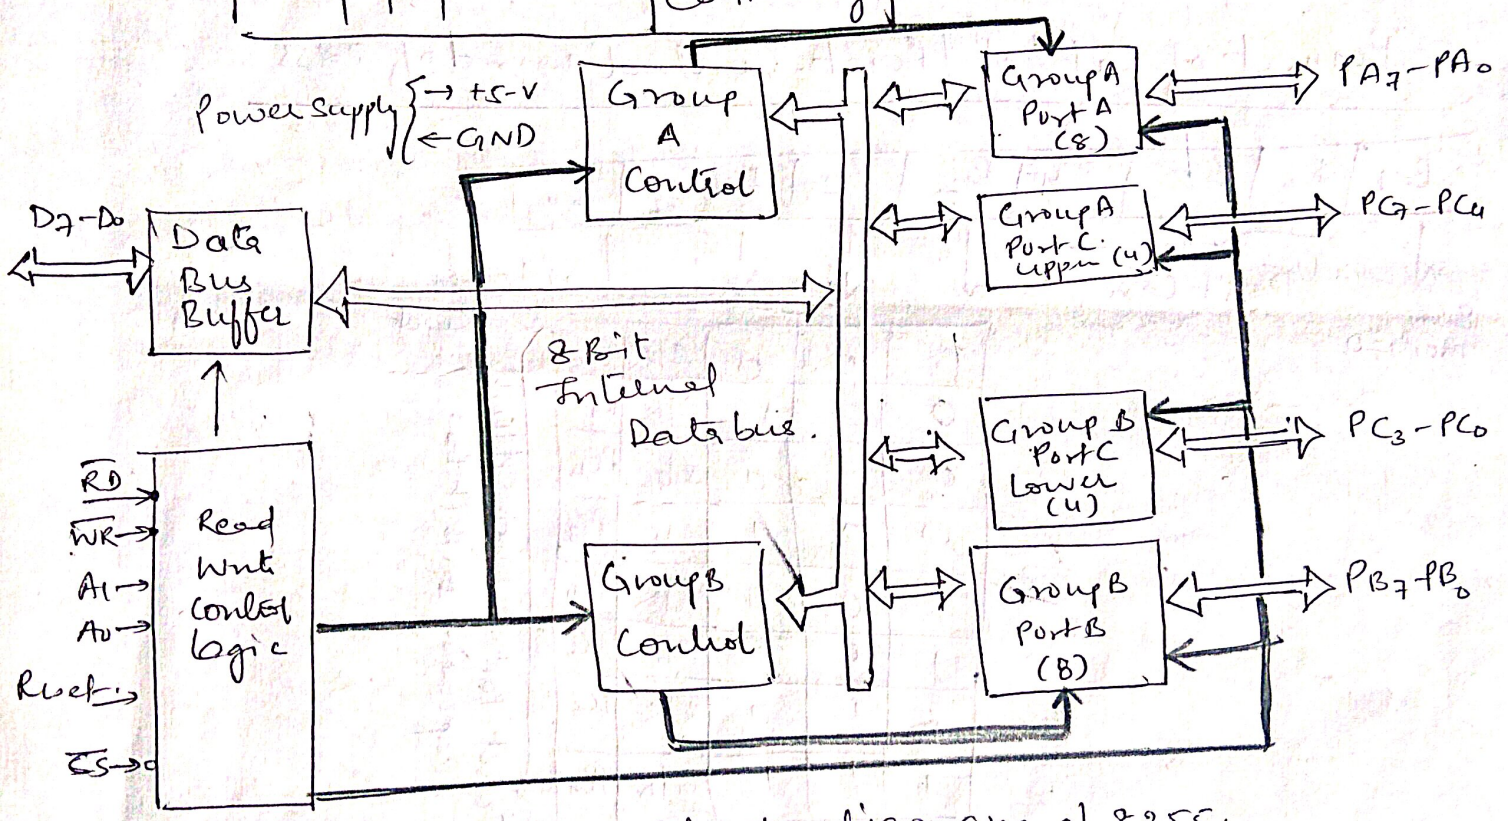 Power supply
→ +5-V
← GND
Group
A
Control
Group A
Port A
(8)
PA7-PA0
D7-D0
Data
Bus
Buffer
Group A
Port C.
upper (4)
PC7-PC4
8-Bit
Internal
Data bus.
Group B
Port C
Lower
(4)
PC3-PC0
RD
WR
A1
A0
Reset
CS
Read
Write
Control
Logic
Group B
Control
Group B
Port B
(8)
PB7-PB0
of 8255.